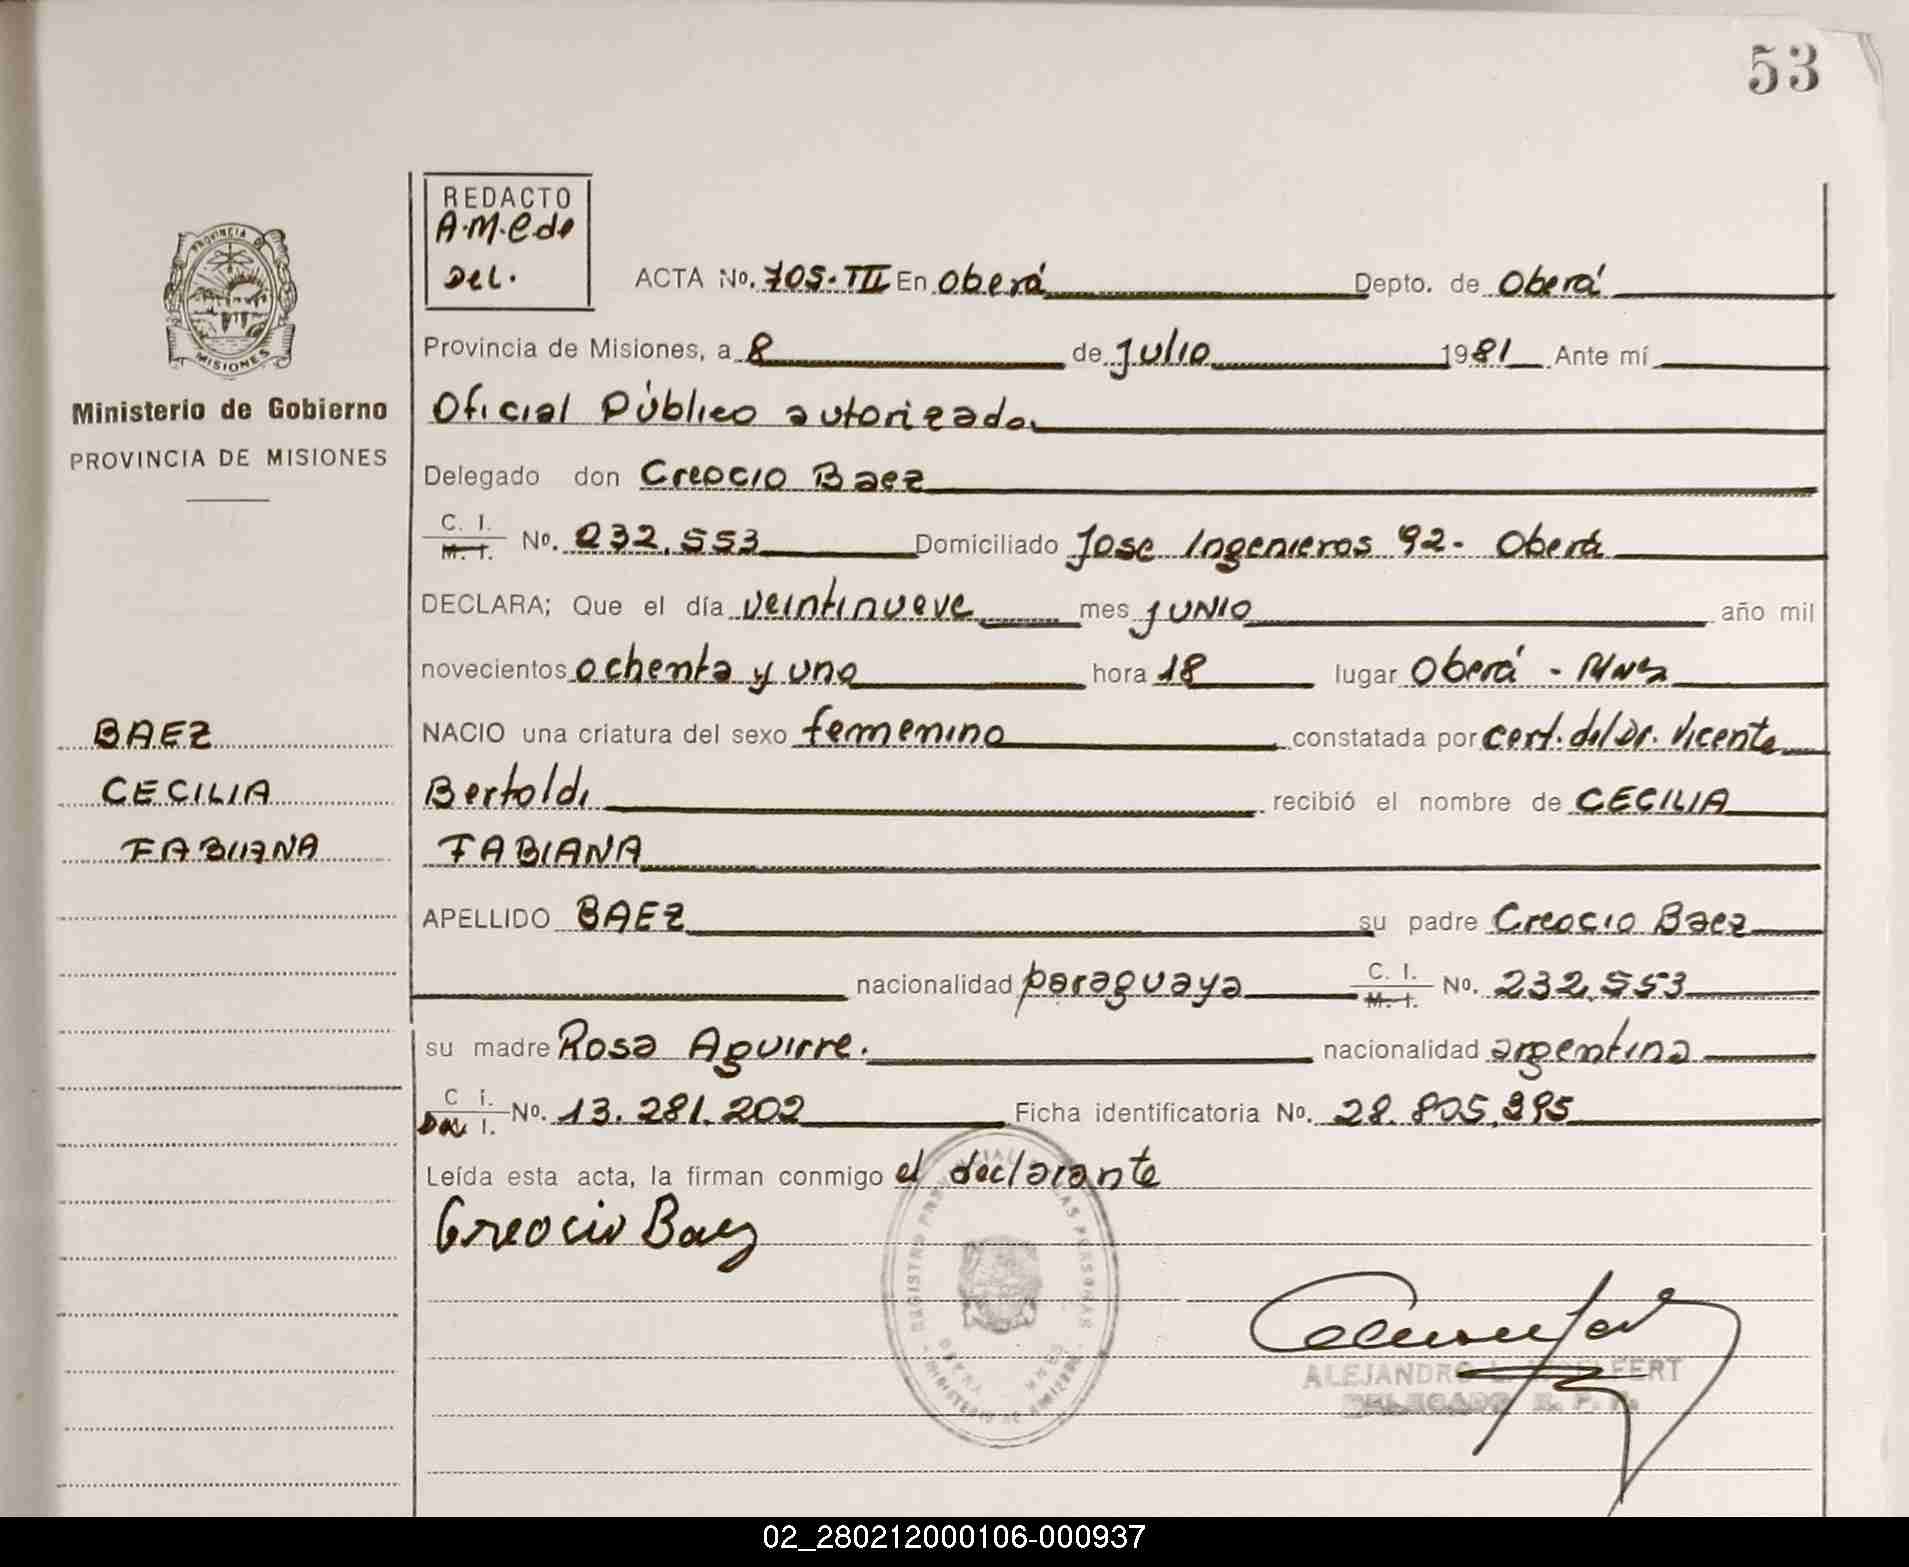 53
REDACTO
A.M.C de
Del.
PROVINCIA DE
MISIONES
Ministerio de Gobierno
PROVINCIA DE MISIONES
ACTA No. 705-III En Oberá Depto. de Oberá
Provincia de Misiones, a 8 de Julio 1981 Ante mí
Oficial Público autorizado
Delegado don Creocio Baez
C. I. M. I. No. 232.553 Domiciliado Jose Ingenieros 92- Oberá
DECLARA; Que el día veintinueve mes JUNIO año mil
novecientos ochenta y uno hora 18 lugar Oberá - Mnes
NACIO una criatura del sexo femenino constatada por cert. del Dr. Vicente
Bertoldi recibió el nombre de CECILIA
FABIANA
BAEZ
CECILIA
FABIANA
APELLIDO BAEZ su padre Creocio Baez
nacionalidad paraguaya C. I. M. I. No. 232.553
su madre Rosa Aguirre. nacionalidad argentina
C. I. No. 13.281.202 Ficha identificatoria No. 28.805.395
Leída esta acta, la firman conmigo el declarante
Creocio Baez
REGISTRO PROVINCIAL DE LAS PERSONAS
OBERA MNES
MINISTERIO DE GOBIERNO
ALEJANDRO
DELEGADO R. P. P.
02_280212000106-000937